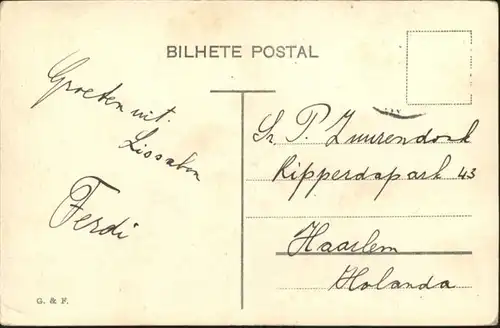 BILHETE POSTAL
Groeten uit.
Lissabon
Ferdi
Sr. P. Zuurendonk
Ripperdapark 43
Haarlem
Holanda
G. & F.